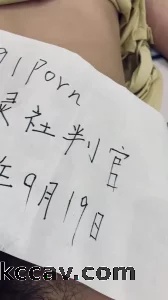 91Porn
灵社判官
9月19日
kccav.com